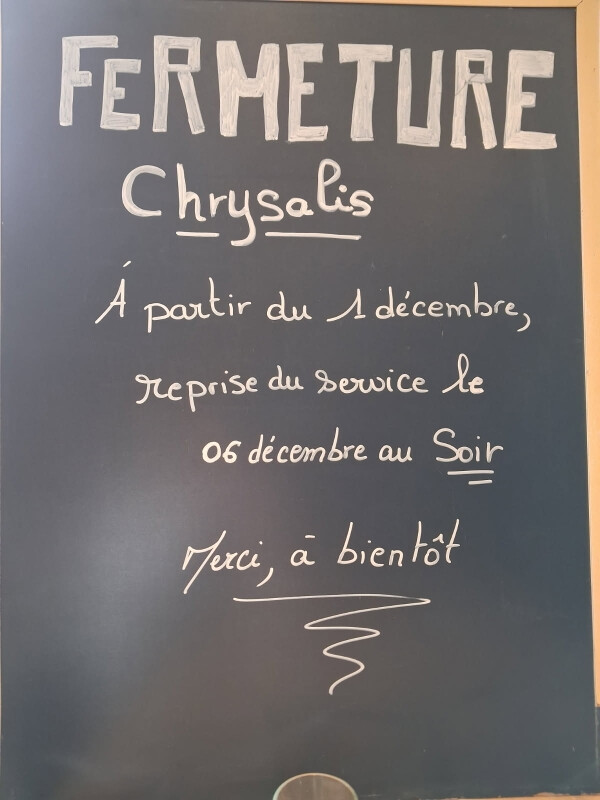 FERMETURE
Chrysalis
Á partir du 1 décembre,
reprise du service le
06 décembre au Soir
Merci, à bientôt